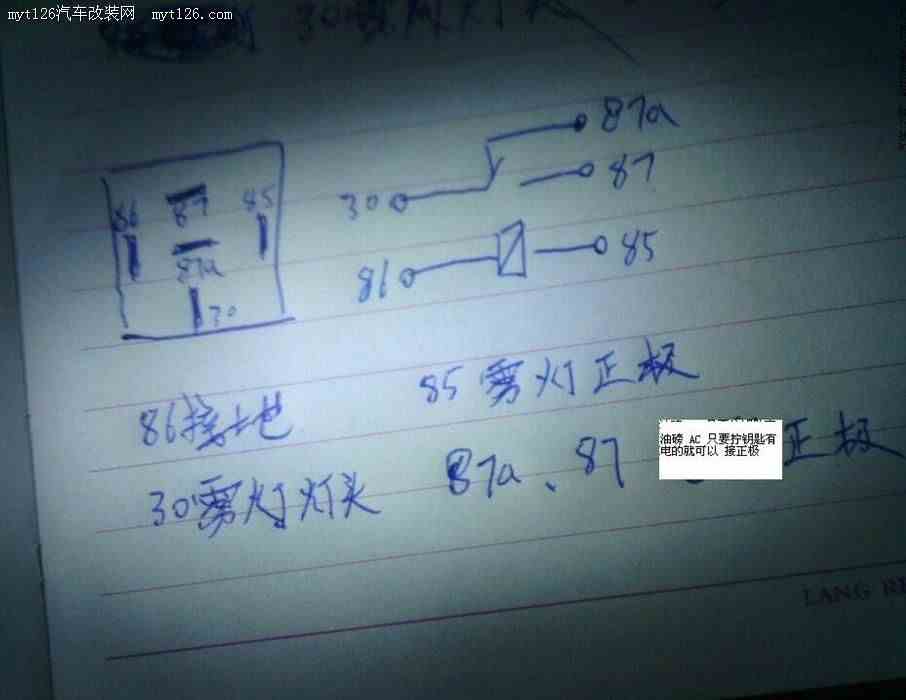 myt126汽车改装网 myt126.com
30雾灯灯头
87a
86 87 85
30 87
87a
86 85
30
86接地 85雾灯正极
油磅 AC 只要拧钥匙有
电的就可以 接正极
30雾灯灯头 87a、87 正极
LANG RE